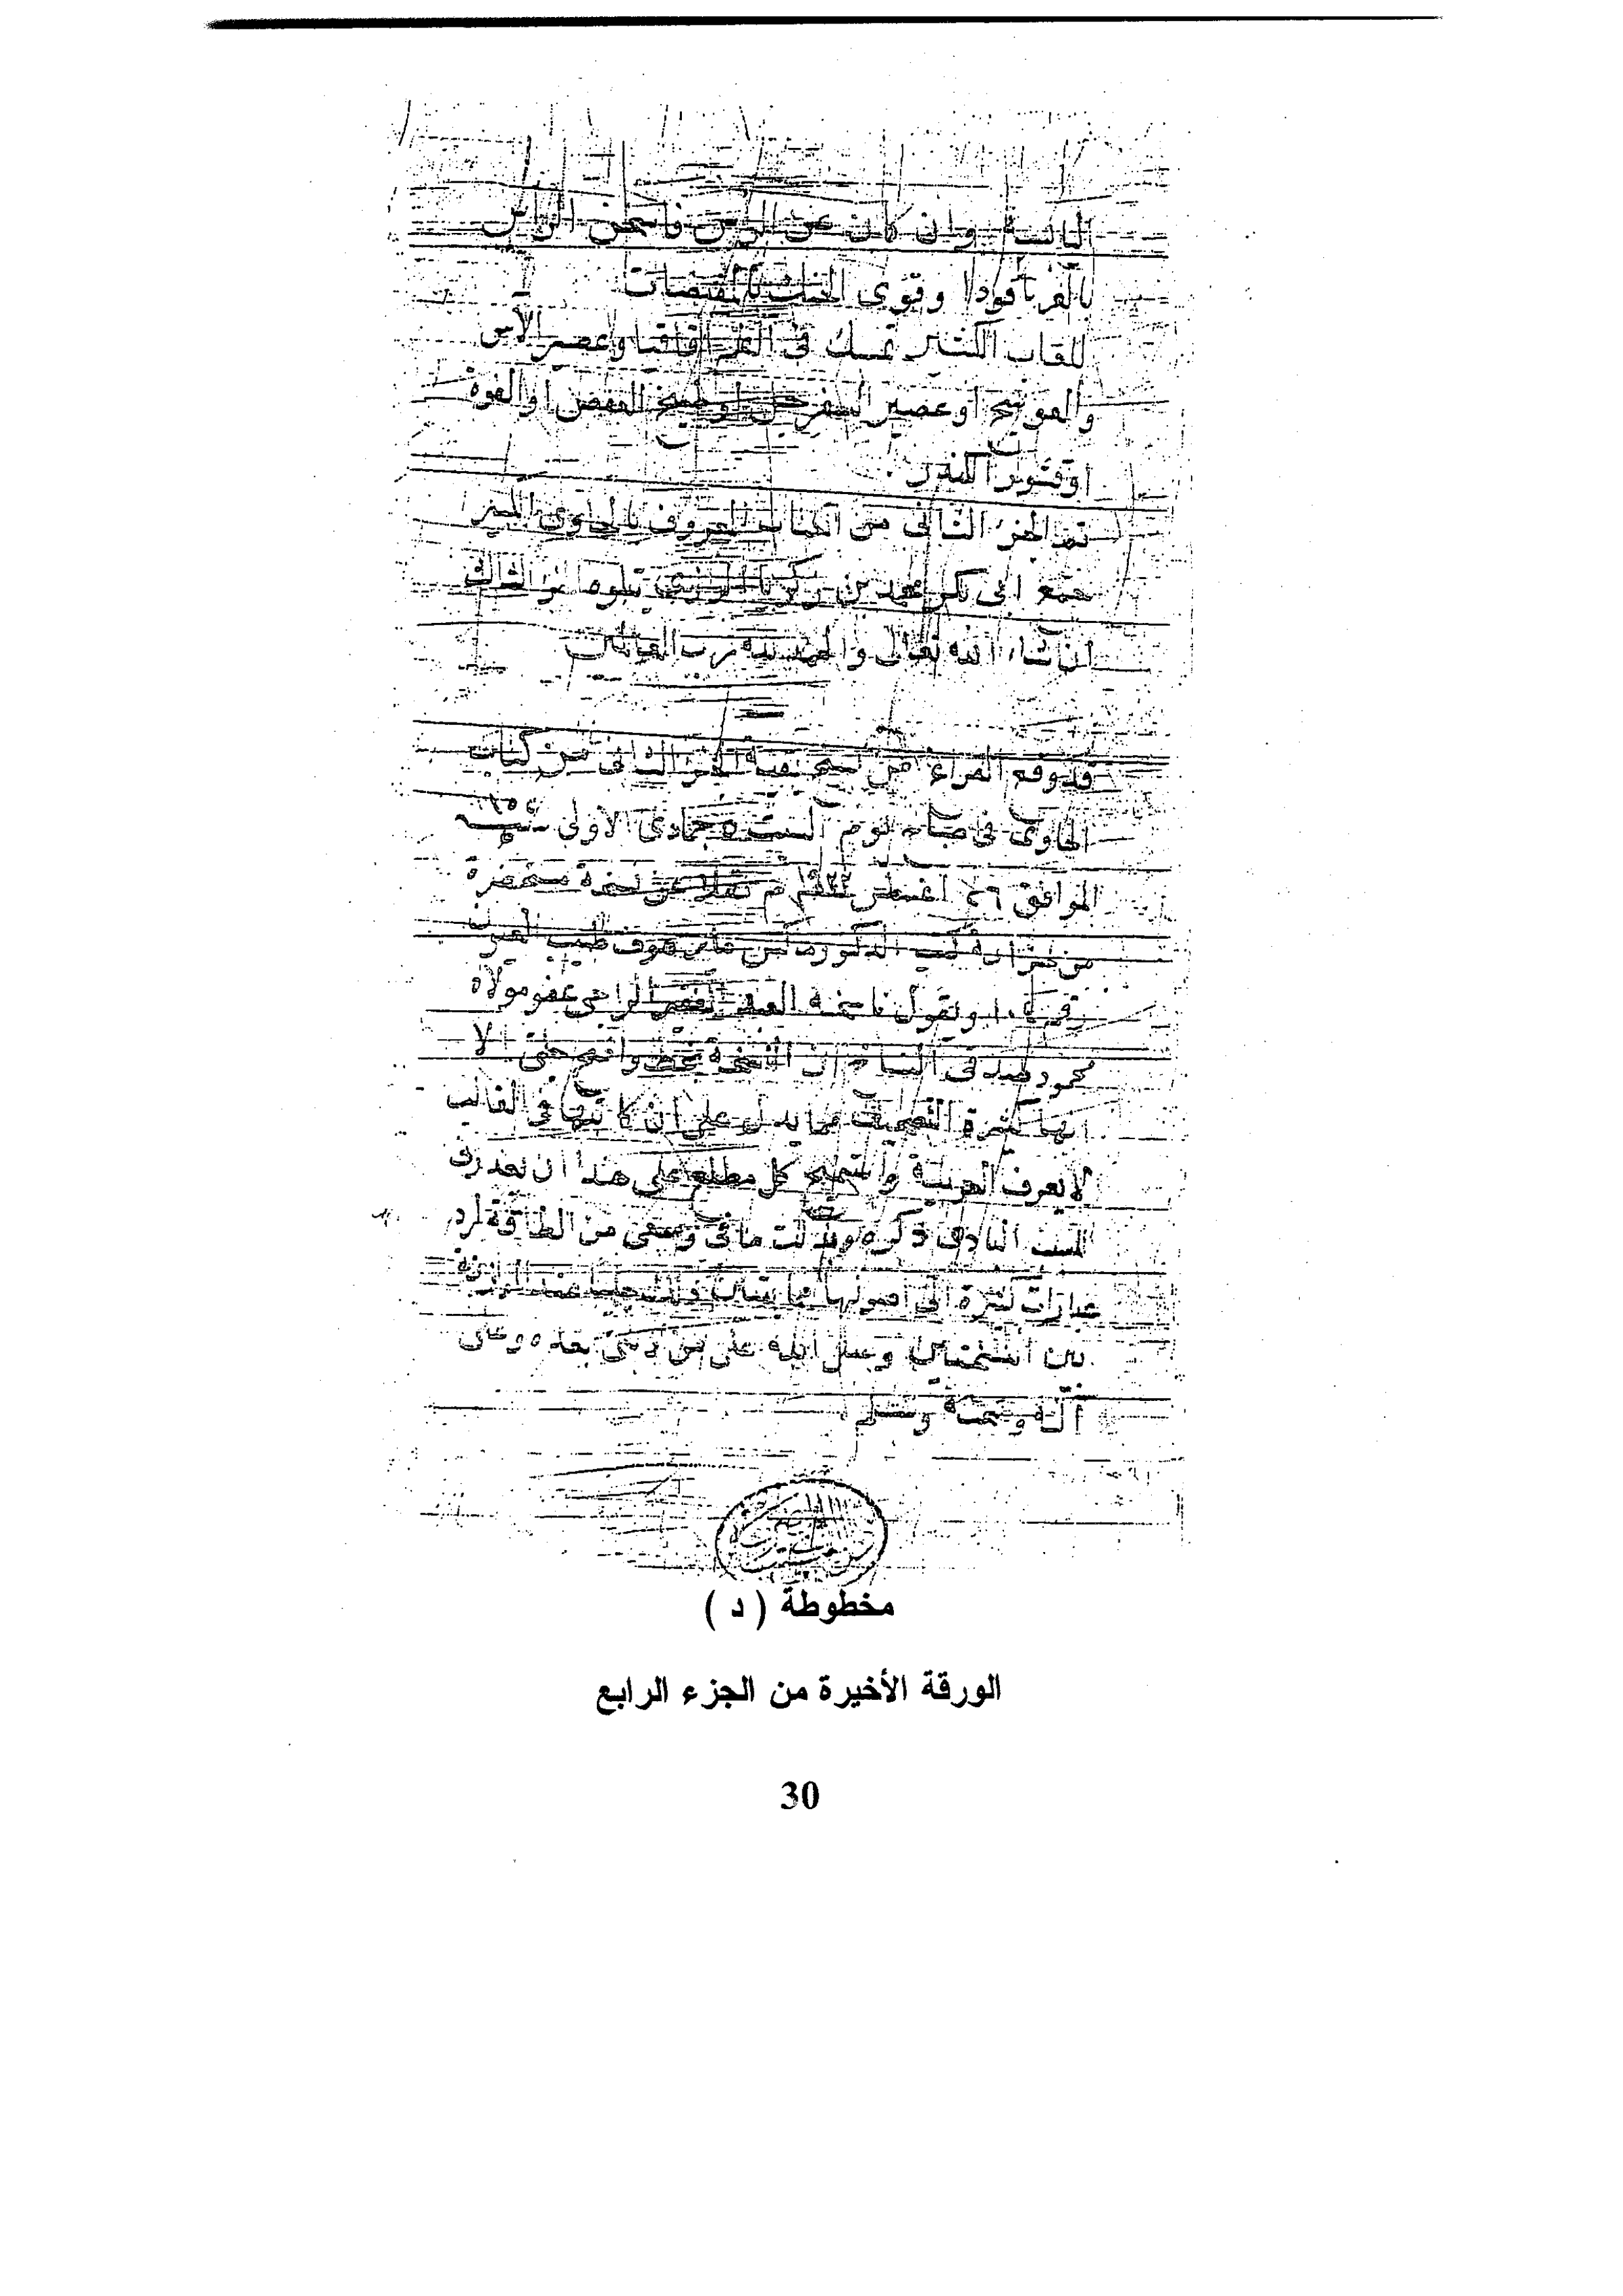 اليابسة وان كان عن الراس فاسخن الراس
بالفربافودا وقوى الحنك بالمقبضات
للعاب الكثير تمسك في الفم اقاقيا وعصير الآس
والعوسج او عصير السفرجل او طبيخ العفص او الفوة
او قشور الكندر
تم الجزء الثاني من الكتاب المعروف بالحاوى
جمع ابى بكر محمد بن زكريا الرازى يتلوه الثالث
ان شاء الله تعالى والحمد لله رب العالمين
قد وقع الفراغ من بقية الجزء الثانى من كتاب
الحاوى فى صباح يوم السبت ٥ جمادى الاولى سنة
الموافق ٢٦ اغسطس م نقلا عن نسخة مستحضرة
من خزانة كتب الدكتور ماكس مايرهوف طبيب العيون
ويقول ناسخه العبد الفقير الراجى عفو مولاه
محمود صدقى النساخ ان النسخة بخط واضح جلى الا
انها كثيرة التصحيف مما يدل على ان كاتبها فى الغالب
لا يعرف العربية كل مطلع على هذا ان يعذرنى
للسبب البادى ذكره وبذلت ما فى وسعى من الطاقة لرد
عبارات كثيرة الى اصولها
بين النسختين وصلى الله على من لا نبى بعده وعلى
آله وصحبه وسلم
مخطوطة ( د )
الورقة الأخيرة من الجزء الرابع
30